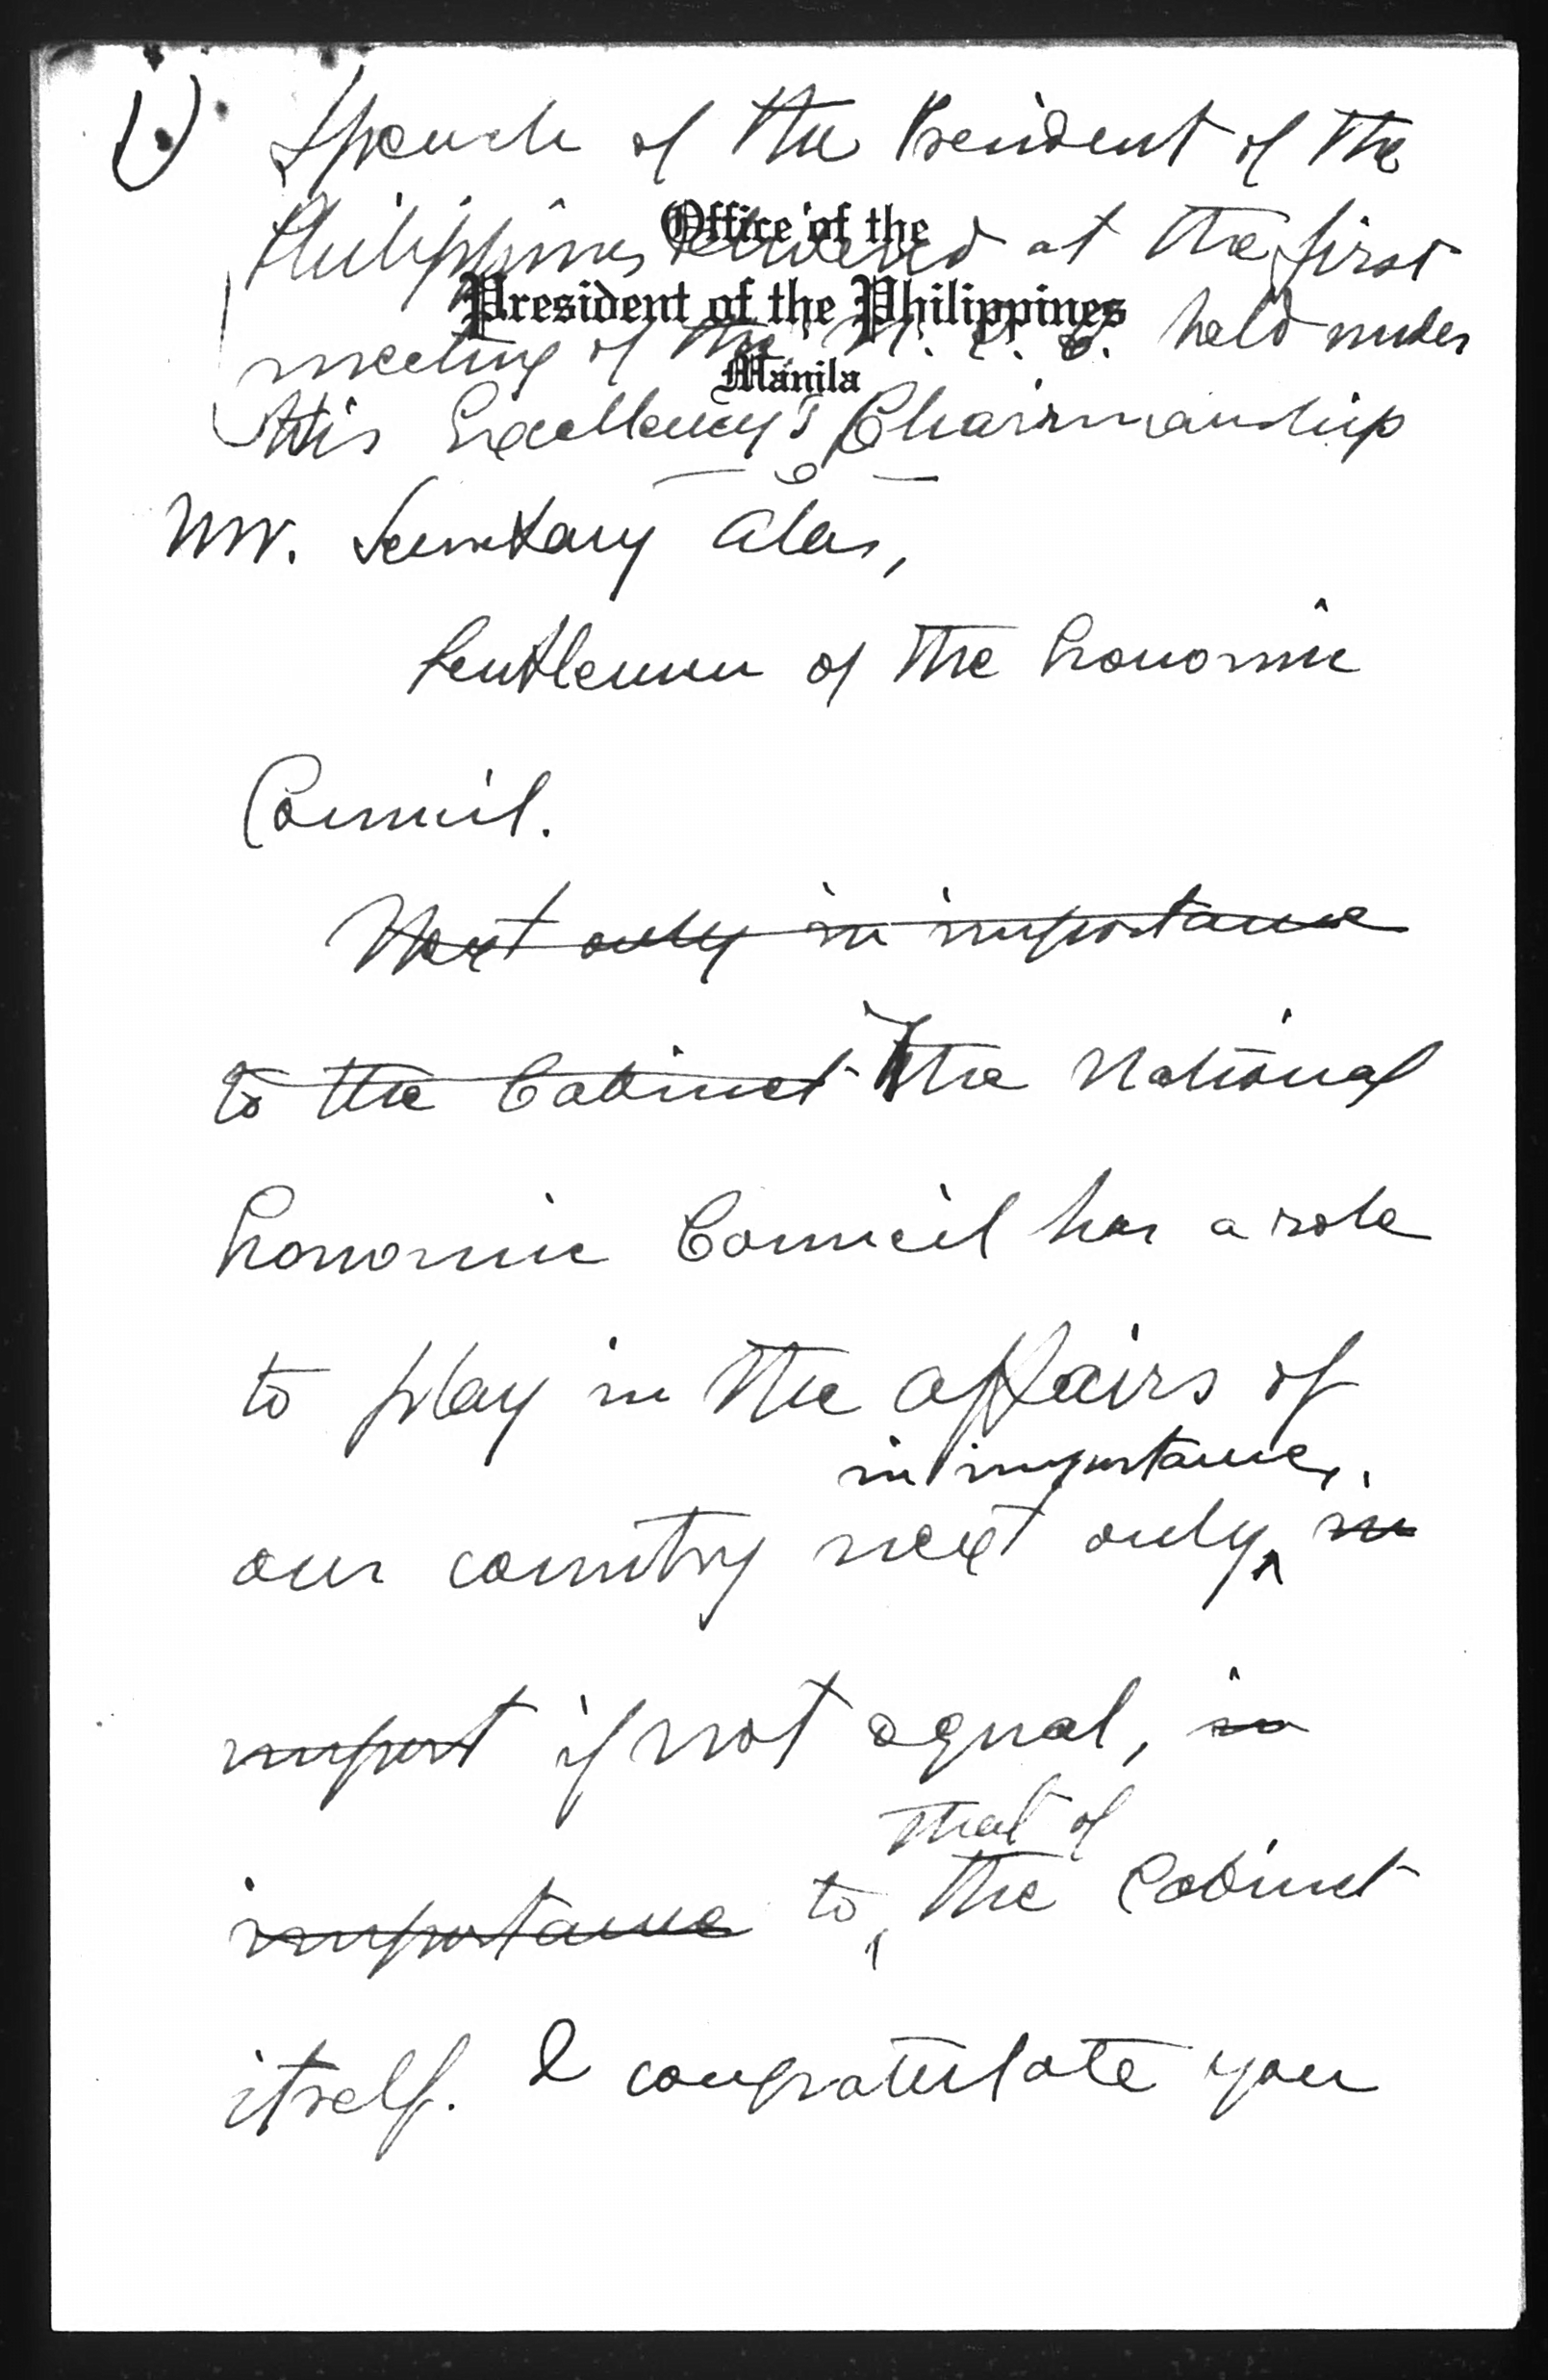 1)
Speech of the President of the
Office of the
Philippines delivered at the first
President of the Philippines
meeting of the N. E. C. held under
Manila
His Excellency's Chairmanship
Mr. Secretary Alas,
Gentlemen of the Economic
Council.
Next only in importance
to the Cabinet The National
Economic Council has a role
to play in the affairs of
in importance,
our country next only in
import if not equal, in
that of
importance to the Cabinet
itself. I congratulate you